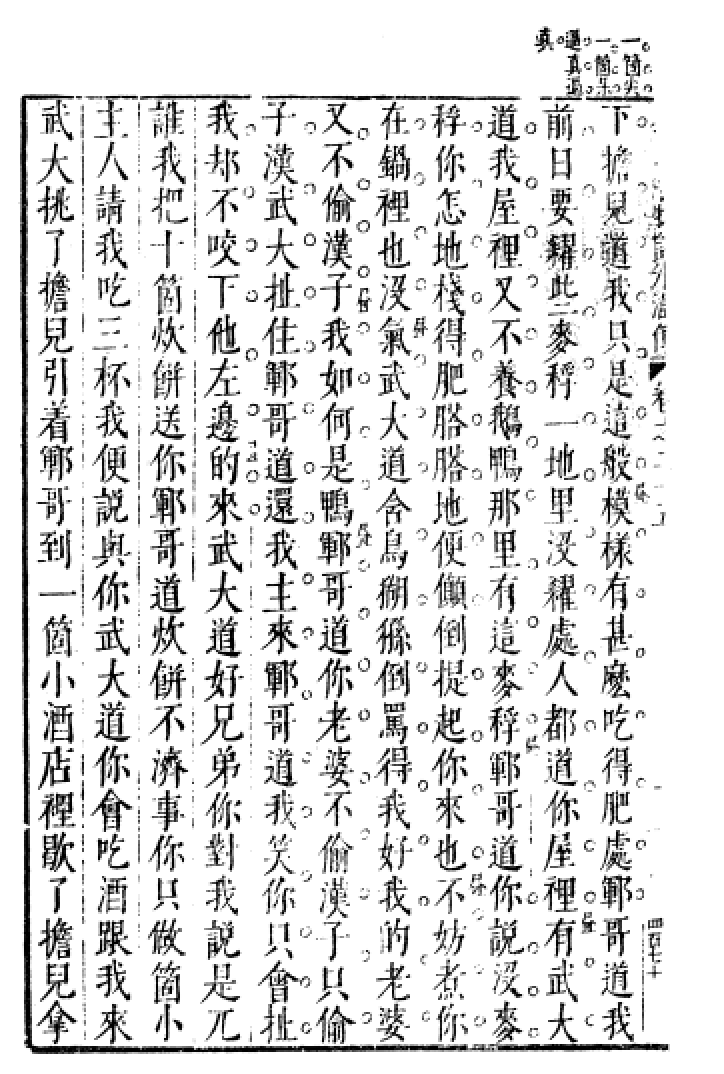 一箇尖
一箇
逼真逼
真
四百七十
下擔兒道我只是這般模樣有甚麽吃得肥處鄆哥道我
前日要糴些麥稃一地里沒糴處人都道你屋裡有武大
道我屋裡又不養鵝鴨那里有這麥稃鄆哥道你說沒麥
稃你怎地棧得肥膪膪地便顛倒提起你來也不妨煮你
在鍋裡也沒氣武大道含鳥猢猻倒罵得我好我的老婆
又不偷漢子我如何是鴨鄆哥道你老婆不偷漢子只偷
子漢武大扯住鄆哥道還我主來鄆哥道我笑你只會扯
我却不咬下他左邊的來武大道好兄弟你對我說是兀
誰我把十箇炊餅送你鄆哥道炊餅不濟事你只做箇小
主人請我吃三杯我便說與你武大道你會吃酒跟我來
武大挑了擔兒引着鄆哥到一箇小酒店裡歇了擔兒拿